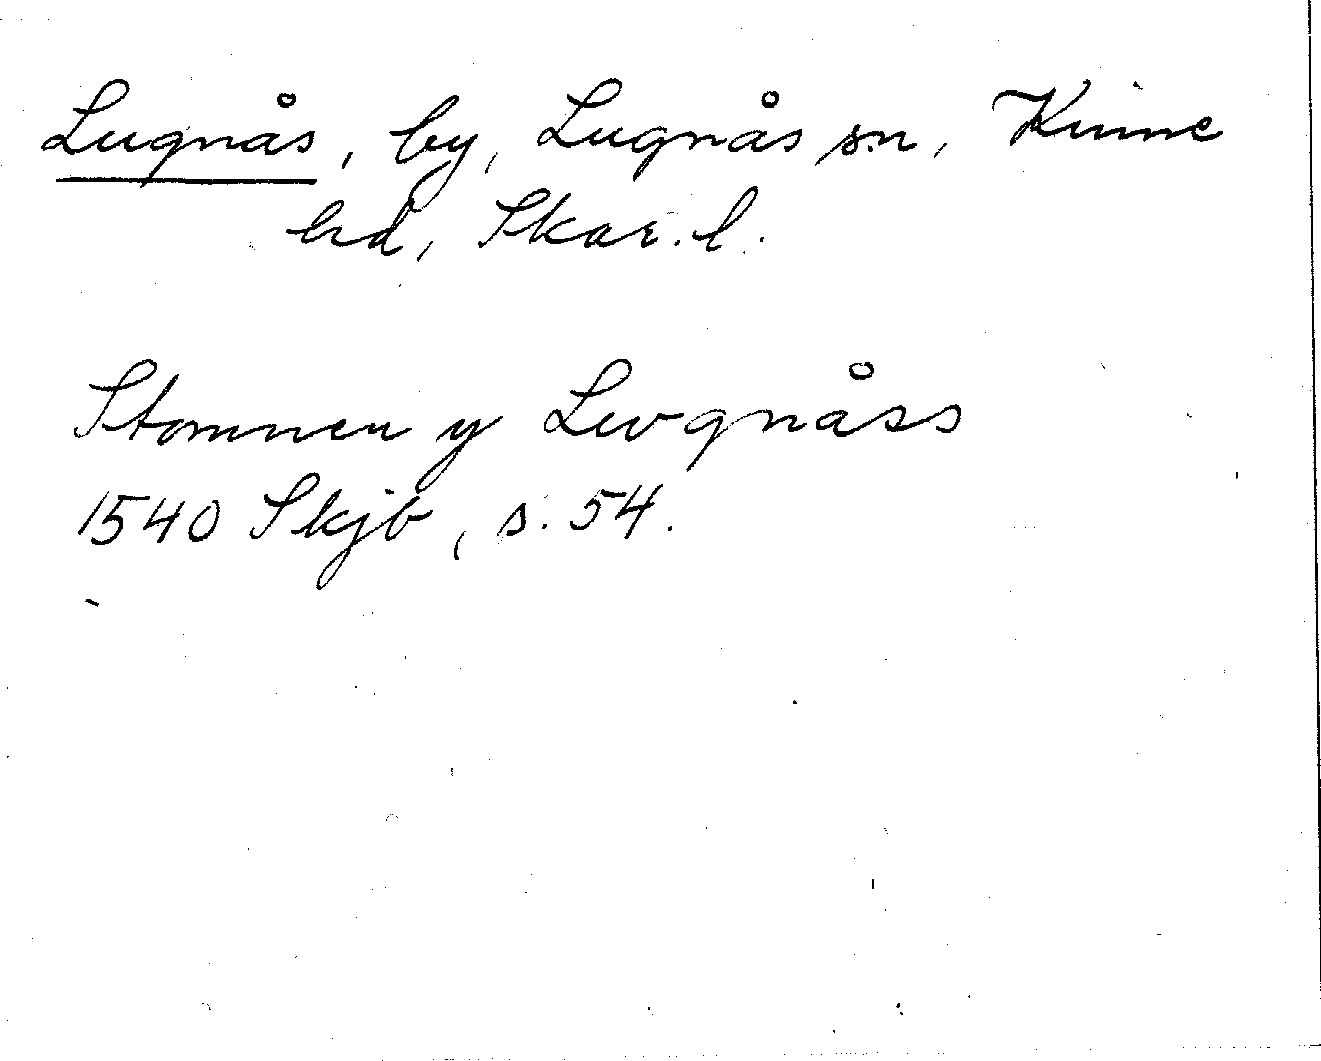 Lugnås, by, Lugnås sn, Kinne
hd, Skar. l.
Stomnen y Lwgnåss
1540 Skjb, s. 54.